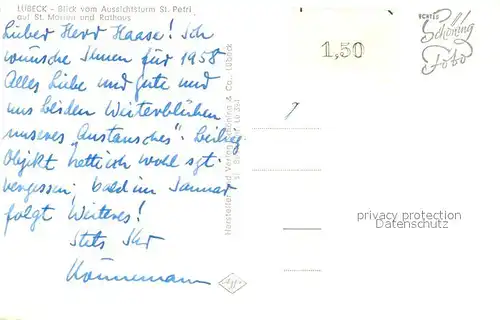 LÜBECK - Blick vom Aussichtsturm St. Petri
auf St. Marien und Rathaus
Lieber Herr Haase! Ich
wünsche Ihnen für 1958
Alles Liebe und Gute und
uns beiden Weiterblühen
unseres "Austausches".
Objekt hatte ich wohl
vergessen; bald im Januar
folgt Weiteres!
Stets Ihr
Könnemann
1,50
ECHTES
Schöning
Foto
Hersteller und Verlag Schöning & Co., Lübeck
privacy protection
Datenschutz